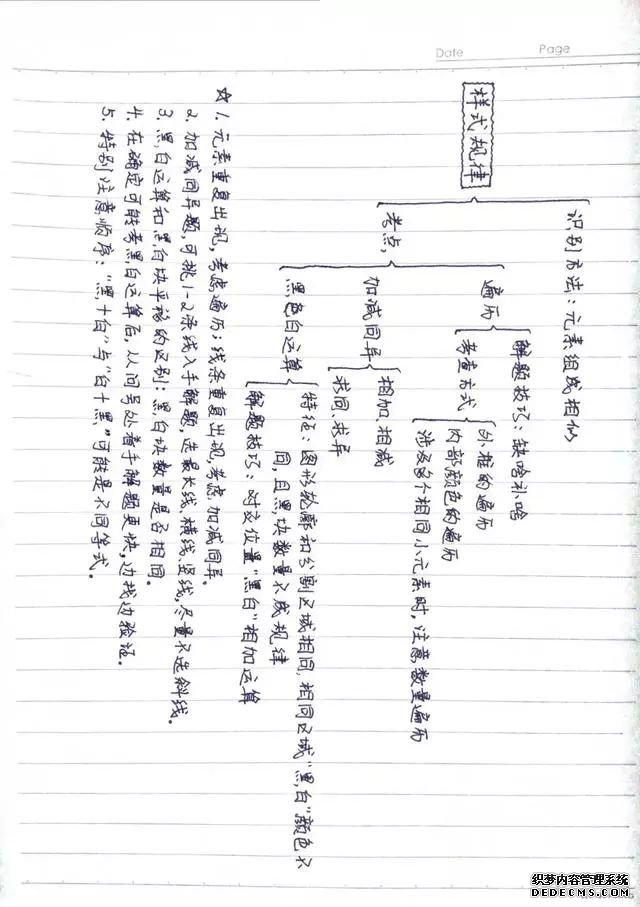 Date Page
样式规律
识别方法：元素组成相似
考点
遍历
解题技巧：缺啥补啥
考查方式
外框的遍历
内部颜色的遍历
涉及多个相同小元素时，注意数量遍历
加减同异
相加、相减
求同、求异
黑色白运算
特征：图形轮廓和分割区域相同，相同区域“黑，白”颜色不
同，且黑块数量不成规律
解题技巧：对应位置“黑白”相加运算
☆ 1. 元素重复出现，考虑遍历；线条重复出现，考虑加减同异。
2. 加减同异题，可挑1-2条线入手解题，选最长线，横线，竖线，尽量不选斜线。
3. 黑，白运算和黑白块平移的区别：黑白块数量是否相同。
4. 在确定可能考黑白运算后，从问号处着手解题更快，边找边验证。
5. 特别注意顺序：“黑+白”与“白+黑”可能是不同等式。
织梦内容管理系统
DEDECMS.COM